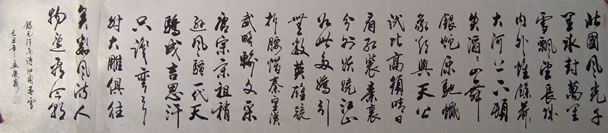 北國風光千
里冰封萬里
雪飄望長城
内外惟餘莽莽
大河上下頓
失滔滔山舞
銀蛇原馳蠟
象欲與天公
試比高須晴日
看紅裝素裹
分外妖嬈江山
如此多嬌引
無數英雄競
折腰惜秦皇漢
武略輸文采
唐宗宋祖稍
遜風騷一代天
驕成吉思汗
只識彎弓
射大雕俱往
矣數風流人
物還看今朝
錄毛澤東沁園春雪